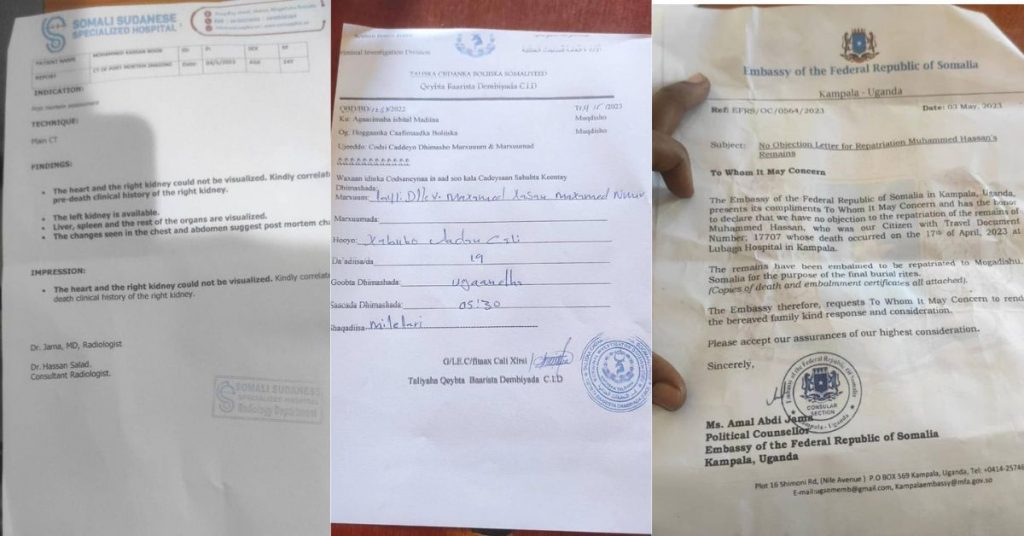 SOMALI SUDANESE
SPECIALIZED HOSPITAL
PATIENT NAME
MOHAMMED HASSAN NOOR
ID:
SEX
REPORT
CT OF POST MORTEM IMAGING
Date:
INDICATION:
Post mortem assessment
TECHNIQUE:
Plain CT
FINDINGS:
• The heart and the right kidney could not be visualized. Kindly correlat
pre-death clinical history of the right kidney.
• The left kidney is available.
• Liver, spleen and the rest of the organs are visualized.
• The changes seen in the chest and abdomen suggest post mortem ch
IMPRESSION:
• The heart and the right kidney could not be visualized. Kindly correlat
death clinical history of the right kidney.
Dr. Jama, MD, Radiologist
Dr. Hassan Salad.
Consultant Radiologist.
SOMALI SUDANESE
SPECIALIZED HOSPITAL
Radiology Department
Criminal Investigation Division
TALISKA CIIDANKA BOLIISKA SOMALIYEED
Qeybta Baarista Dembiyada C.I.D
/2022
/2023
Ku: Agaasimaha Isbital Madiina
Muqdisho
Og. Hoggaanka Caafimaadka Boliiska
Muqdisho
Ujeeddo: Codsi Caddeyn Dhimasho Marxuum & Marxuumad
Waxaan idinka Codsaneynaa in aad soo kala Cadeysaan Sababta Keentay
Dhimashada:
Marxuum:
Marxuumada:
Hooyo:
Da'adiisada 19
Goobta Dhimashada: Ugaandha
Saacada Dhimashada: 05:30
Shaqadiisa: Miletari
G/LE.C/fitaax Cali Xirsi
Taliyaha Qeybta Baarista Dembiyada C.I.D
Embassy of the Federal Republic of Somalia
Kampala - Uganda
Ref: EFRS/OC/0564/2023
Date: 03 May, 2023
Subject: No Objection Letter for Repatriation Muhammed Hassan's
Remains
To Whom It May Concern
The Embassy of the Federal Republic of Somalia in Kampala, Uganda,
presents its compliments To Whom It May Concern and has the honor
to declare that we have no objection to the repatriation of the remains of
Muhammed Hassan, who was our Citizen with Travel Document
Number; 17707 whose death occurred on the 17th of April, 2023 at
Lubaga Hospital in Kampala.
The remains have been embalmed to be repatriated to Mogadishu,
Somalia for the purpose of the final burial rites.
(Copies of death and embalment certificates all attached).
The Embassy therefore, requests To Whom It May Concern to rend
the bereaved family kind response and consideration.
Please accept our assurances of our highest consideration.
Sincerely,
Embassy of the Federal Republic of Somalia
CONSULAR
SECTION
Kampala - Uganda
Ms. Amal Abdi Jama
Political Counsellor
Embassy of the Federal Republic of Somalia
Kampala, Uganda
Plot 16 Shimoni Rd, (Nile Avenue ) P.O BOX 569 Kampala, Uganda, Tel: +0414-25746
E-mail:ugasomemb@gmail.com, Kampalaembassy@mfa.gov.so